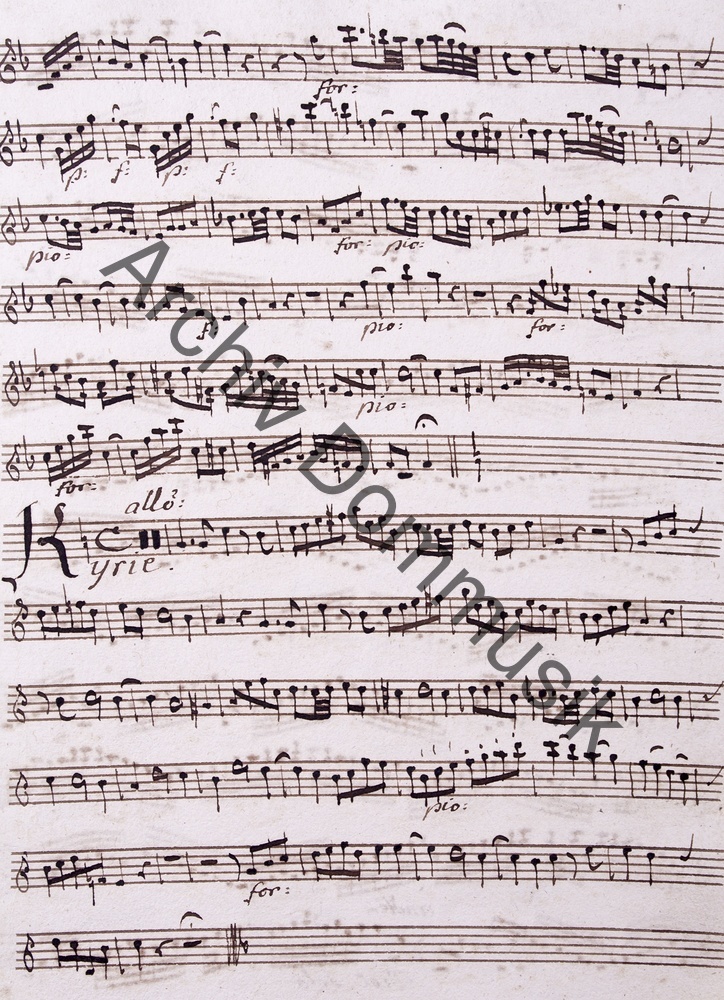 for:
p: f: p: f:
pio: for: pio:
f: pio: for:
pio:
for:
allo:
Kyrie.
pio:
for:
Archiv Dommusik